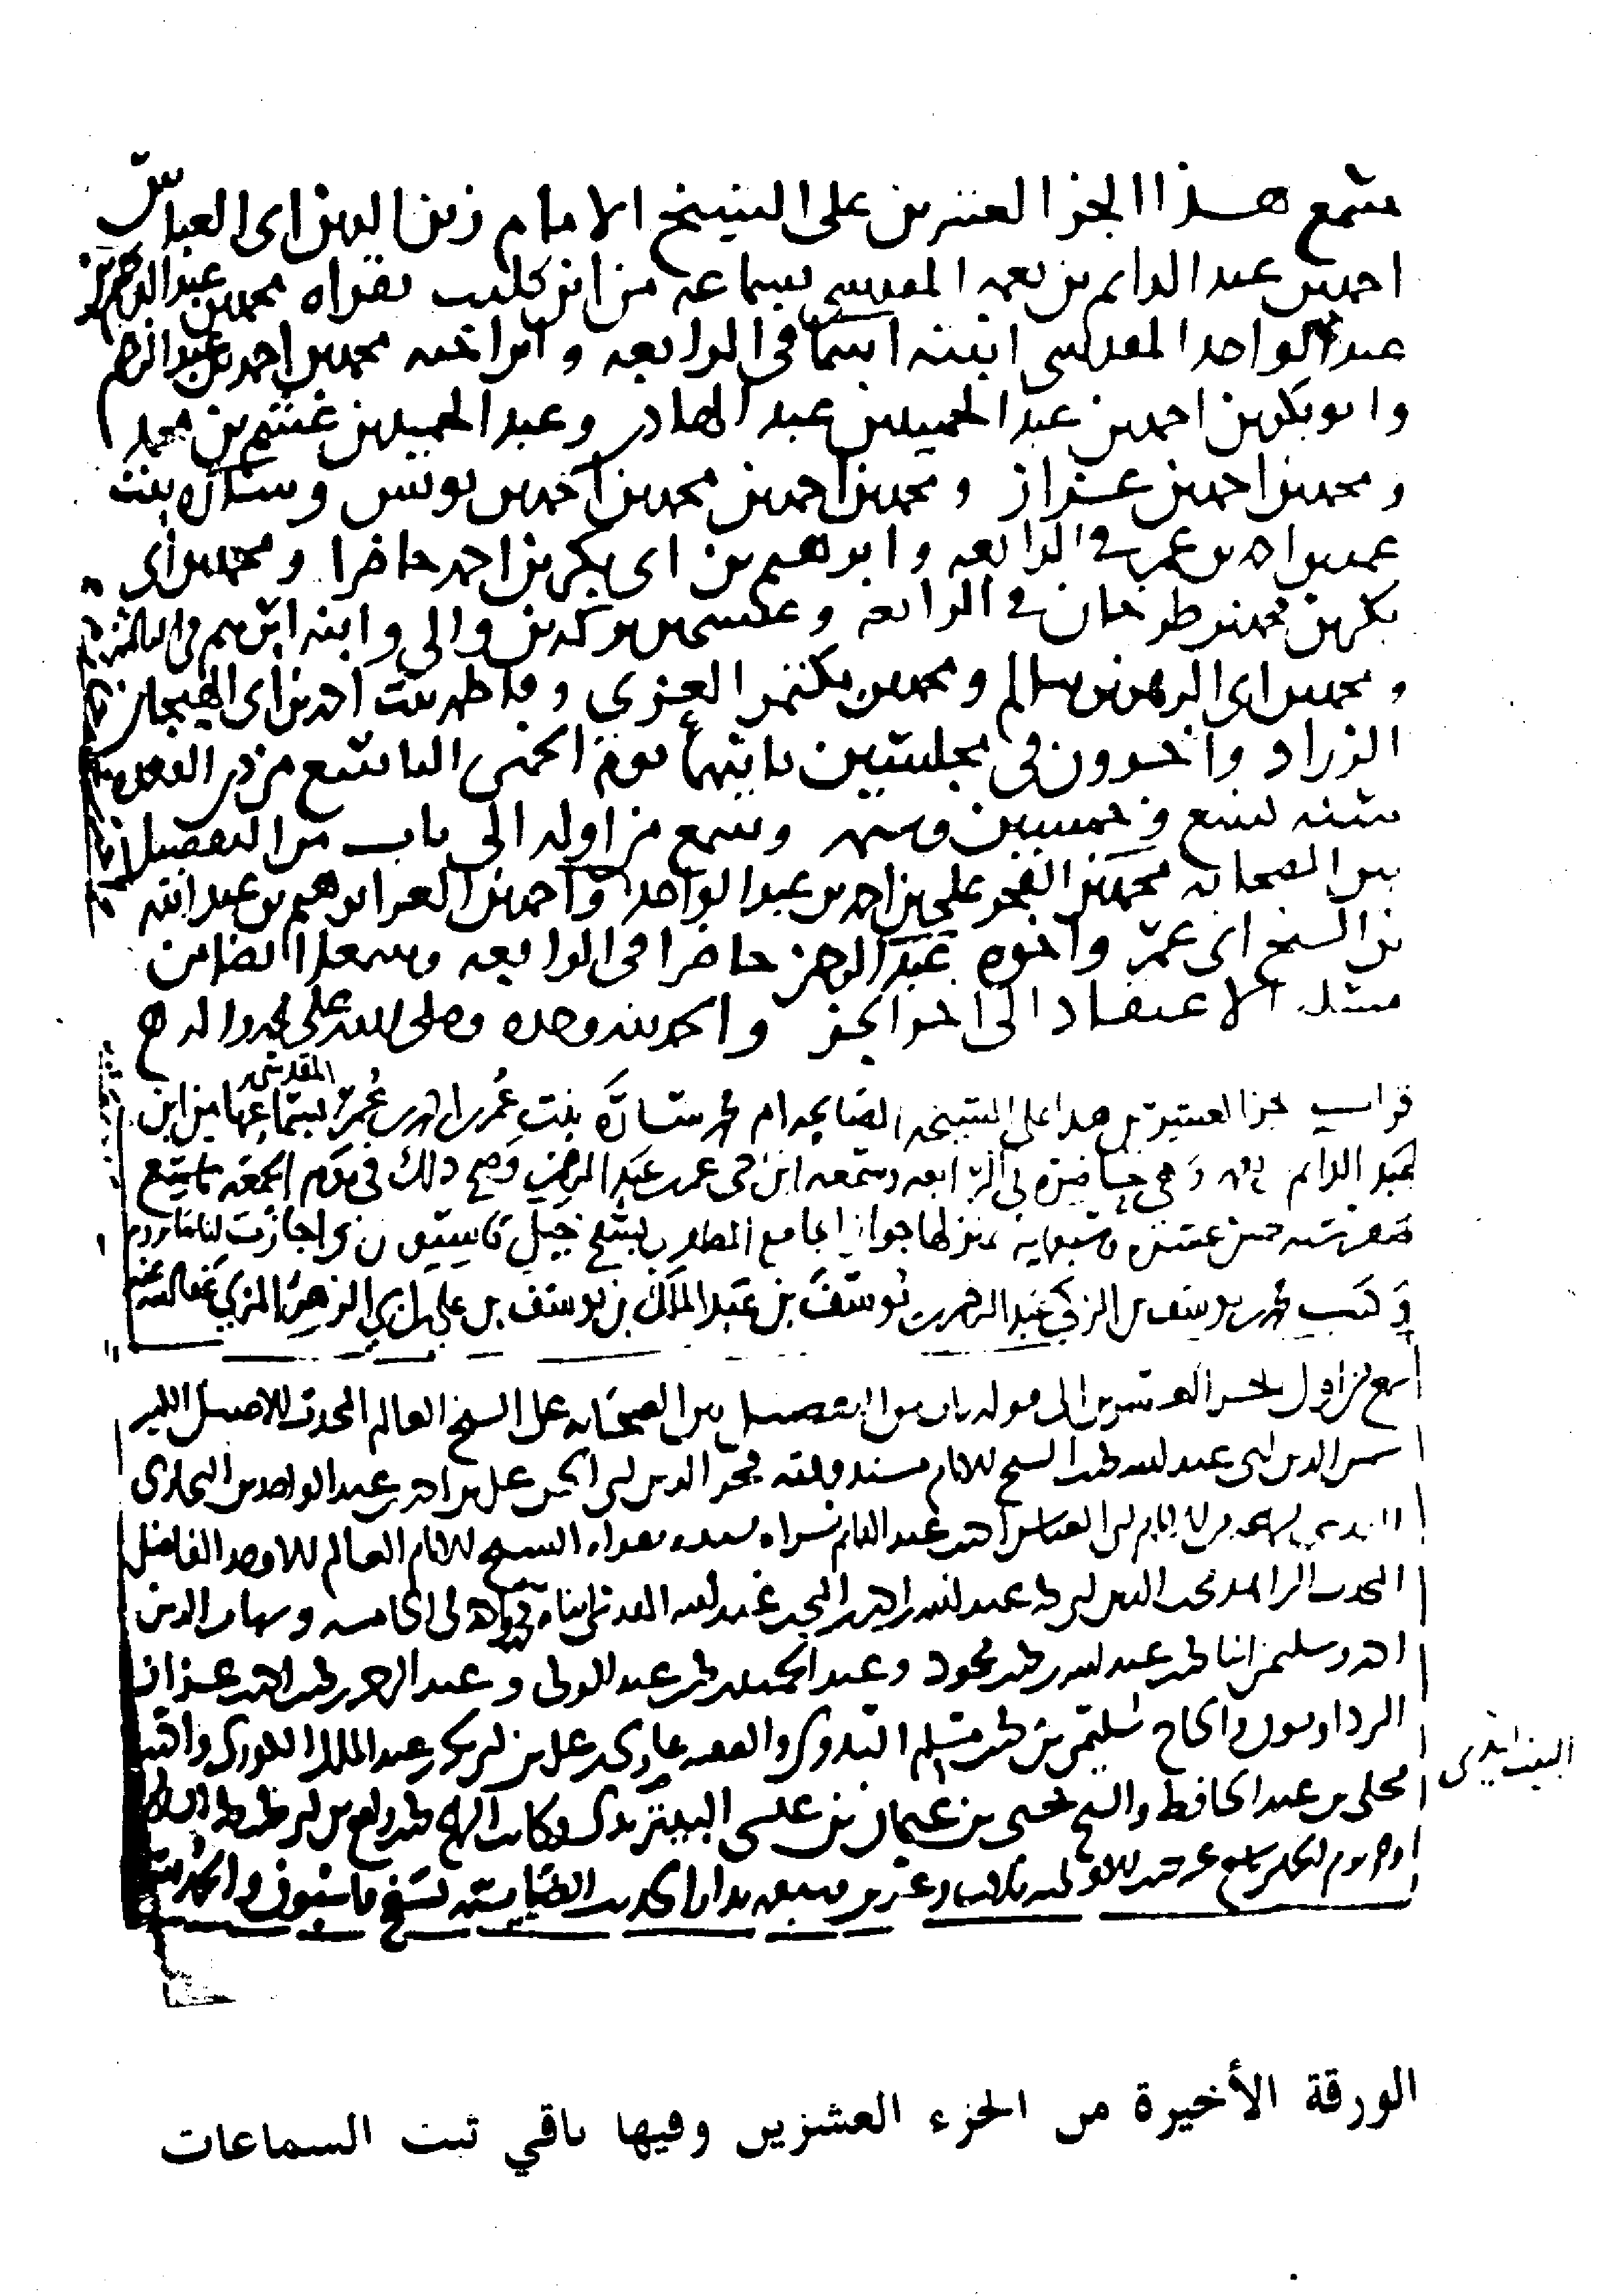 سمع هذا الجزا العشرين على الشيخ الامام زين الدين ابى العباس
احمد بن عبد الدايم بن نعمه المقدسى بسماعه من ابن كليب بقراه محمد بن عبد الرحيم بن
عبد الواحد المقدسى ابنته اسما فى الرابعه وابن اخته محمد بن احمد بن عبد الرحيم
وابو بكر بن احمد بن عبد الحميد بن عبد الهادى وعبد الحميد بن غشم بن محمد
ومحمد بن احمد بن عزاز ومحمد بن احمد بن محمد بن احمد بن يونس وستاره بنت
عمر بن احمد بن عمر فى الرابعه وابرهيم بن ابى بكر بن احمد حاضرا ومحمد بن ابى
بكر بن محمد بن طرخان فى الرابعه وعيسى بن بركه بن والى وابنه ابرهيم فى
ومحمد بن ابى الزهر بن سالم ومحمد بن بكتمر العزى وفاطمه بنت احمد بن ابى الهيجا بن
الزراد واخرون فى مجلسين ثانيهما يوم الخميس التاسع من ذى القعده
سنه تسع وخمسين وستمه وسمع من اوله الى باب من التفضيل
بين الصحابه محمد بن الفخر على بن احمد بن عبد الواحد واحمد بن العز ابرهيم بن عبد الله
بن الشيخ ابى عمر واخوه عبد الرحمن حاضرا فى الرابعه وسمعا ايضا من
مسله الاعتقاد الى اخر الجز والحمد لله وحده وصلى الله على محمد واله
المقدسى
قرات الجزا العشرين هذا على الشيخه الصالحه ام محمد ستاره بنت عمر بن احمد بن عمر بسماعها من ابن
عبد الدايم وهى حاضره فى الرابعه وسمعه ابن اخى عمر بن عبد الرحمن وصح ذلك فى يوم الجمعه تاسع
صفر سنه خمس عشره وسبعمايه بمنزلها جوار الجامع المظفرى بسفح جبل قاسيون واجازت لنا ما ترويه
وكتب محمد بن يوسف بن الزكى عبد الرحمن بن يوسف بن عبد الملك بن يوسف بن على بن ابى الزهر المزى عفا الله عنه
سمع من اول الجز العشرين الى قوله باب من التفضيل بين الصحابه على الشيخ العالم المحدث الاصيل
شمس الدين ابى عبد الله محمد بن الشيخ الامام مسند وقته فخر الدين ابى الحسن على بن احمد بن عبد الواحد بن البخارى
المقدسى بسماعه من الامام ابى العباس احمد بن عبد الدايم بسنده بقراه الشيخ الامام العالم الاوحد الفاضل
المحدث الزاهد محب الدين ابى محمد عبد الله بن احمد بن المحب عبد الله المقدسى ابناه محمد واحمد فى الخامسه وشهاب الدين
احمد وسليمن ابنا محمد بن عبد الله بن محمد بن محمود وعبد الحميد بن محمد بن عبد الولى وعبد الرحمن بن محمد بن احمد بن عزاز
المرداويون والحاج سليمن بن محمد بن مسلم البدوى والفقيه على بن ابى بكر بن عبد الملك الكورى واحمد
محلى بن عبد الحافظ والشيخ يحيى بن عثمان بن عيسى البيتزيدى وكاتب
البيت ايدى
بدار الحديث الضيائيه بسفح قاسيون والحمد لله
الورقة الأخيرة من الجزء العشرين وفيها باقي ثبت السماعات